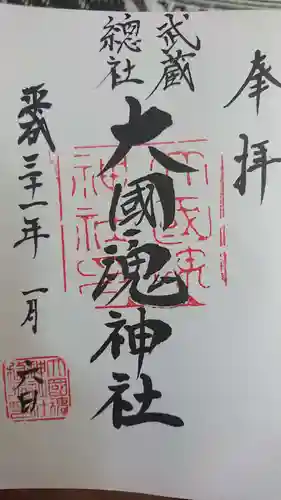 奉拝
武蔵
總社
大國魂神社
平成三十一年 一月
六日